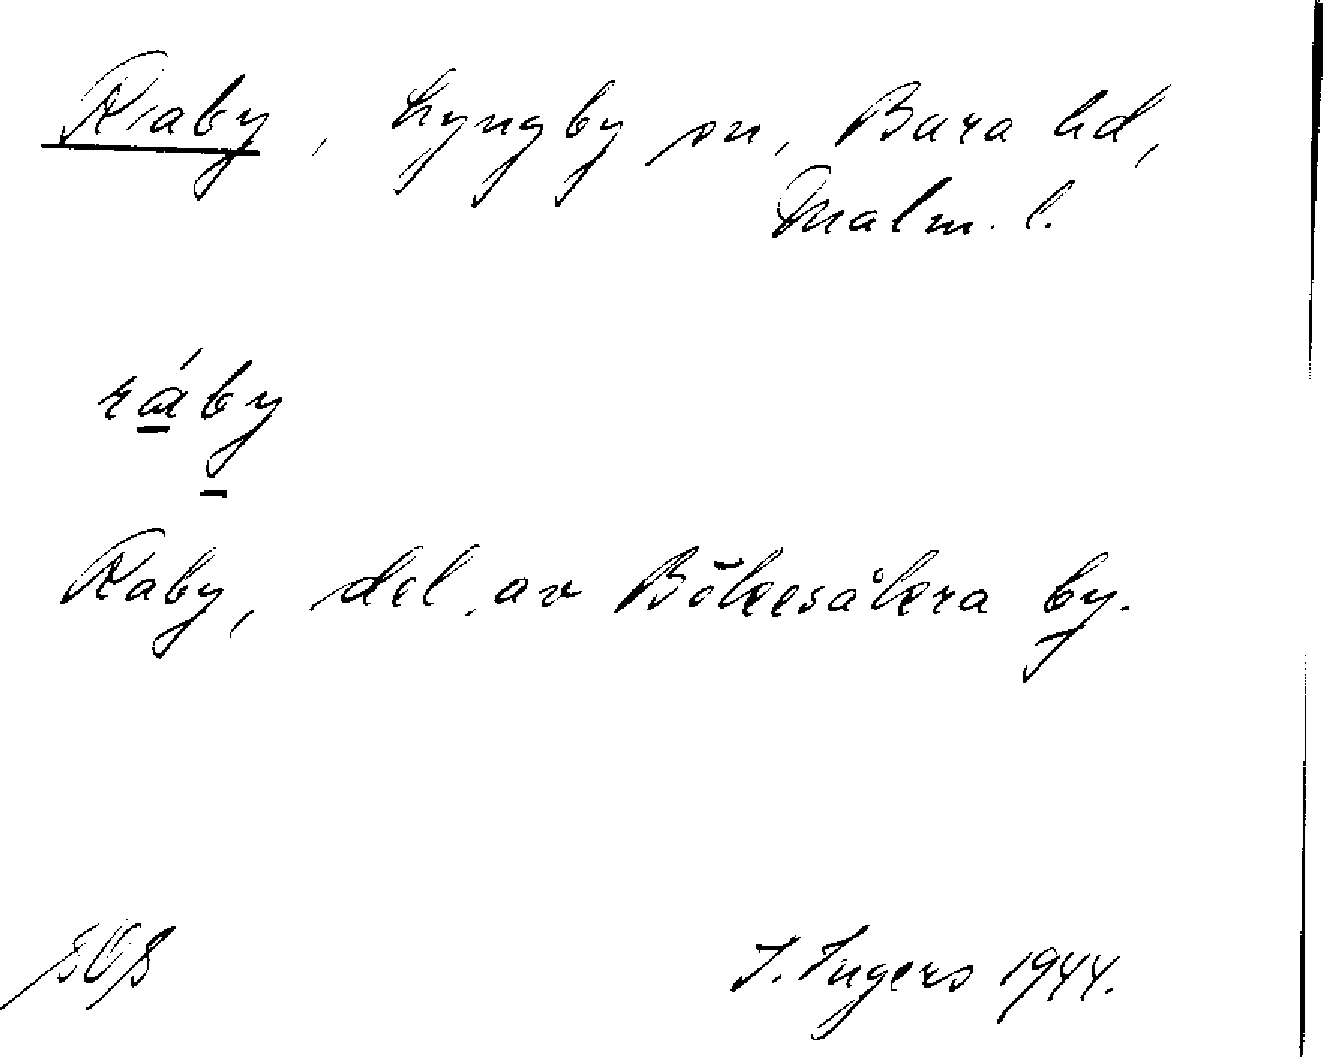 Raby, Lyngby sn, Bara hd,
Malm. l.
ráby
Raby, del av Bökesåkra by.
I. Ingers 1944.